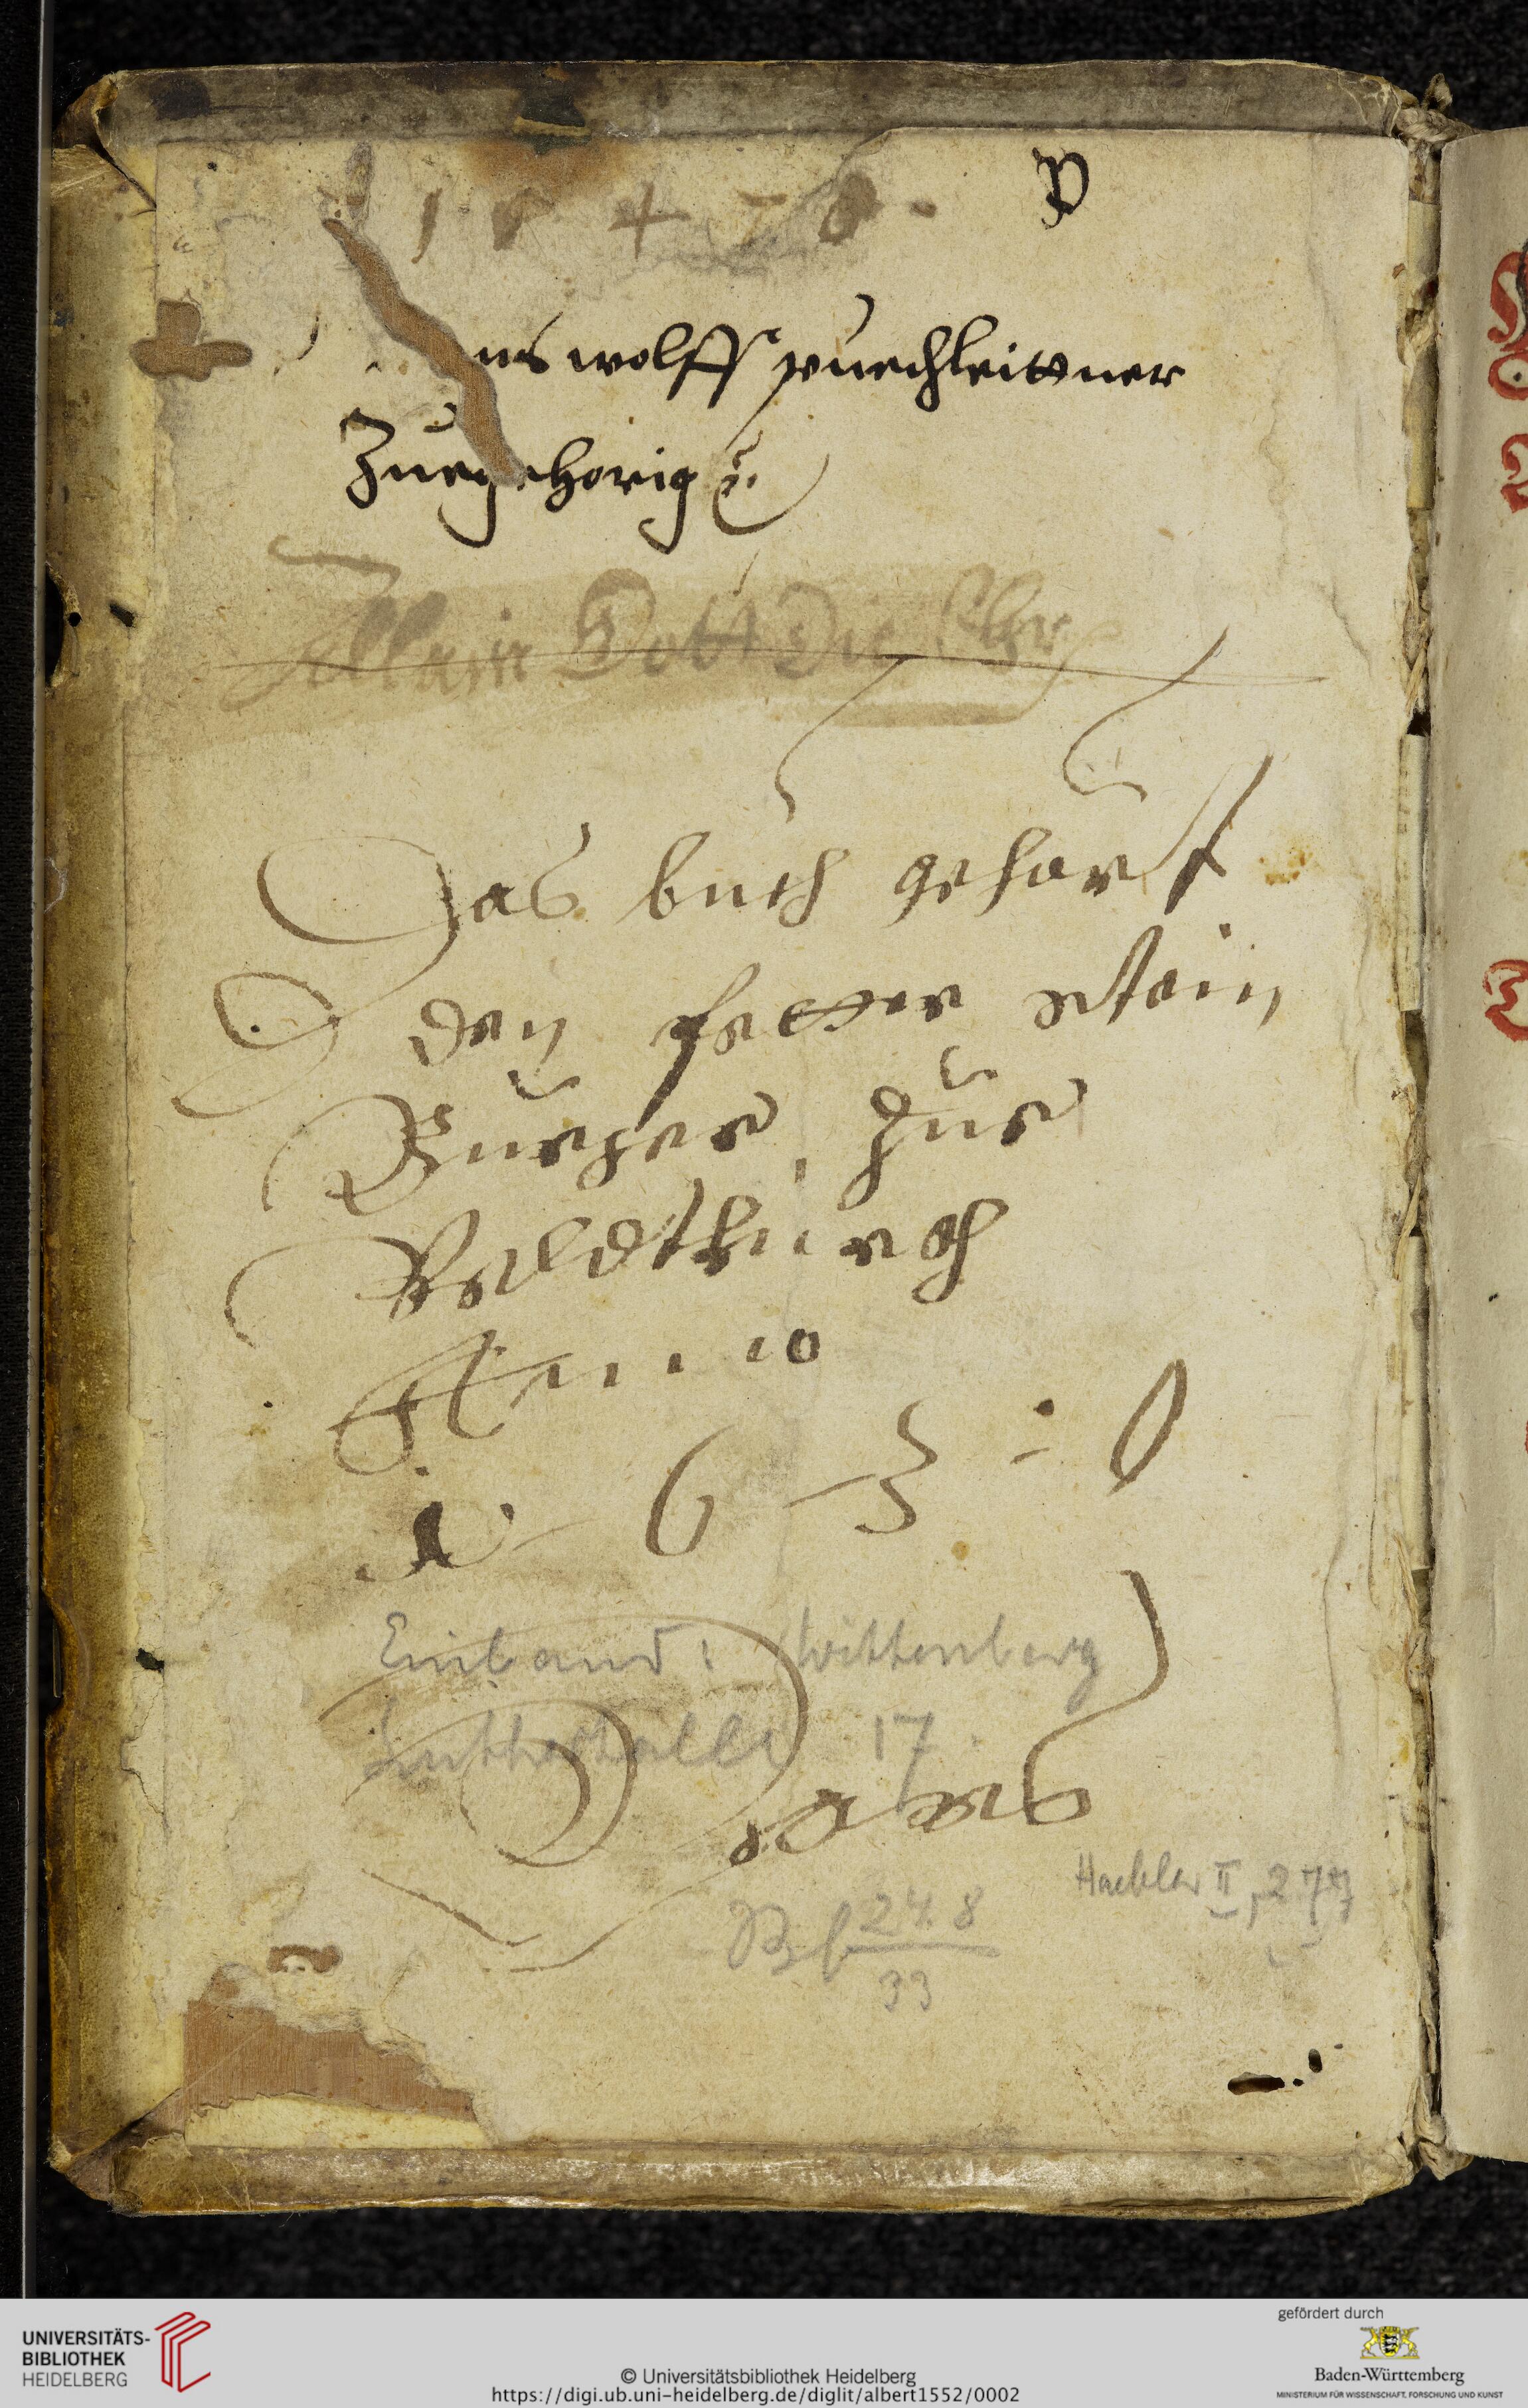 ns wolff puechleittner
Zuegehorig
Allain Gott Die Ehr
Das buch gehört
den petter stain
Burger zue
Anno
1 6 3 0
Einband: Wittenberg
Lutherhalle 17.
Haebler II, 277
24.8
33
UNIVERSITÄTS-
BIBLIOTHEK
HEIDELBERG
© Universitätsbibliothek Heidelberg
https://digi.ub.uni-heidelberg.de/diglit/albert1552/0002
gefördert durch
Baden-Württemberg
MINISTERIUM FÜR WISSENSCHAFT, FORSCHUNG UND KUNST